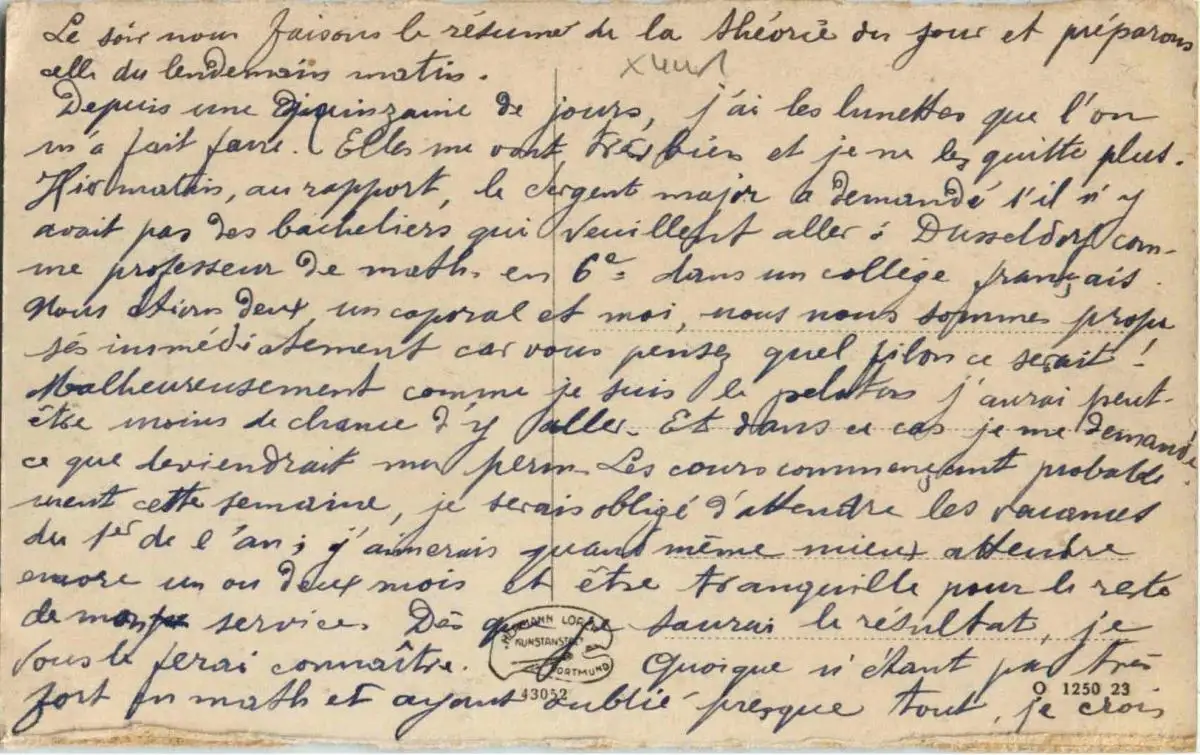 Le soir nous faisons le résumé de la théorie du jour et préparons
celle du lendemain matin.
Depuis une quinzaine de jours, j'ai les lunettes que l'on
m'a fait faire. Elles me vont très bien et je ne les quitte plus.
Hier matin, au rapport, le sergent major a demandé s'il n'y
avait pas des bacheliers qui veuillent aller à Dusseldorf com-
me professeur de math. en 6e dans un collège français.
Nous étions deux, un caporal et moi, nous nous sommes propo
sés immédiatement car vous pensez quel filon ce serait !
Malheureusement comme je suis le peloton j'aurai peut-
être moins de chance d'y aller. Et dans ce cas je me demande
ce que deviendrait ma perm. Les cours commençant probable
ment cette semaine, je serais obligé d'attendre les vacances
du 1er de l'an ; j'aimerais quand même mieux attendre
encore un ou deux mois et être tranquille pour le reste
de mon service. Dès que je saurai le résultat, je
vous le ferai connaître. Quoique n'étant pas très
fort en math et ayant oublié presque tout, je crois
HERMANN LORCH
KUNSTANSTALT
DORTMUND
43052
O 1250 23